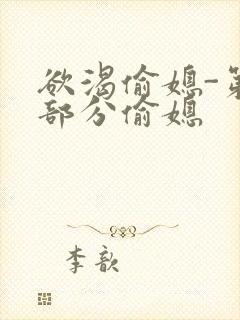 欲渴偷媳-第
部分偷媳
李歆